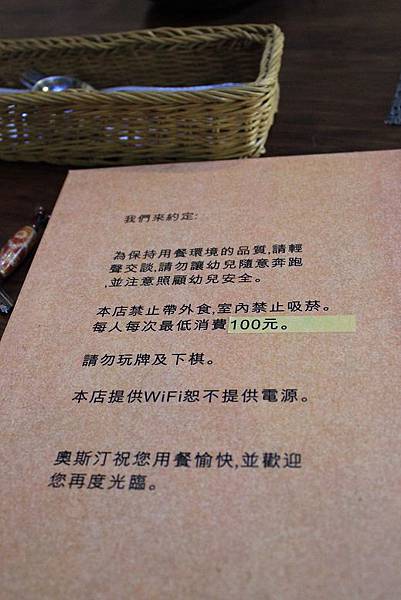 我們來約定:
為保持用餐環境的品質,請輕
聲交談,請勿讓幼兒隨意奔跑
,並注意照顧幼兒安全。
本店禁止帶外食,室內禁止吸菸。
每人每次最低消費100元。
請勿玩牌及下棋。
本店提供WiFi恕不提供電源。
奧斯汀祝您用餐愉快,並歡迎
您再度光臨。